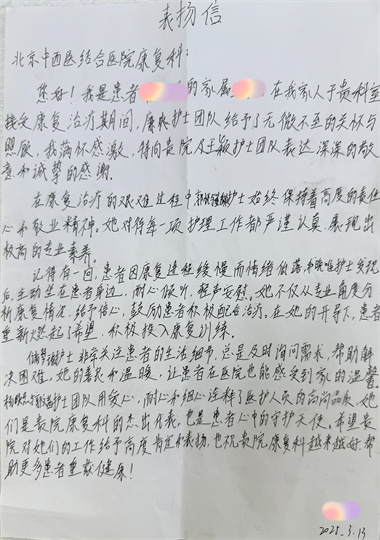 表扬信
北京中西医结合医院康复科：
您好！我是患者 的家属 在我家人于贵科室
接受康复治疗期间，护士团队给予了无微不至的关怀与
照顾，我满怀感激，特向贵院及 护士团队表达深深的敬
意和诚挚的感谢。
在康复治疗的艰难过程中 护士始终保持着高度的责任
心和敬业精神。她对待每一项护理工作都严谨认真，展现出
极高的专业素养。
记得有一回，患者因康复进程缓慢而情绪低落， 护士发现
后，主动坐在患者身边，耐心倾听，轻声安慰。她不仅从专业角度分
析康复情况，给予信心，鼓励患者积极配合治疗。在她的开导下，患者
重新燃起了希望，积极投入康复训练。
护士非常关注患者的生活细节，总是及时询问需求，帮助解
决困难。她的善良和温暖，让患者在医院也能感受到家的温馨
护士团队用爱心、耐心和细心诠释了医护人员的高尚品质，她
们是贵院康复科的杰出代表，也是患者心中的守护天使。希望贵
院对她们的工作给予高度肯定和表扬，也祝贵院康复科越来越好，帮
助更多患者重获健康！
2025.3.13